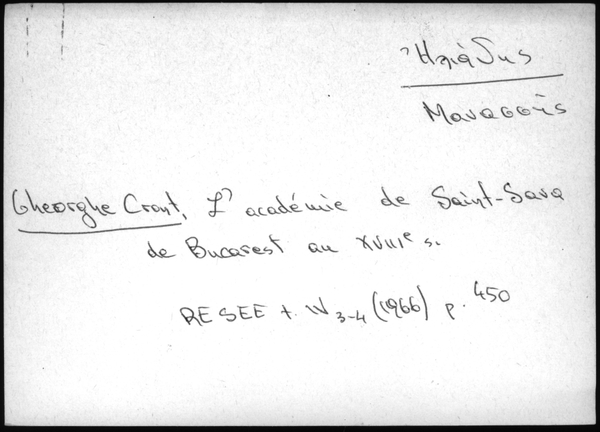 Ἠλιάδης
Μανασσῆς
Gheorghe Cront, L'académie de Saint-Sava
de Bucarest au XVIIIe s.
RESEE t. IV 3-4 (1966) p. 450